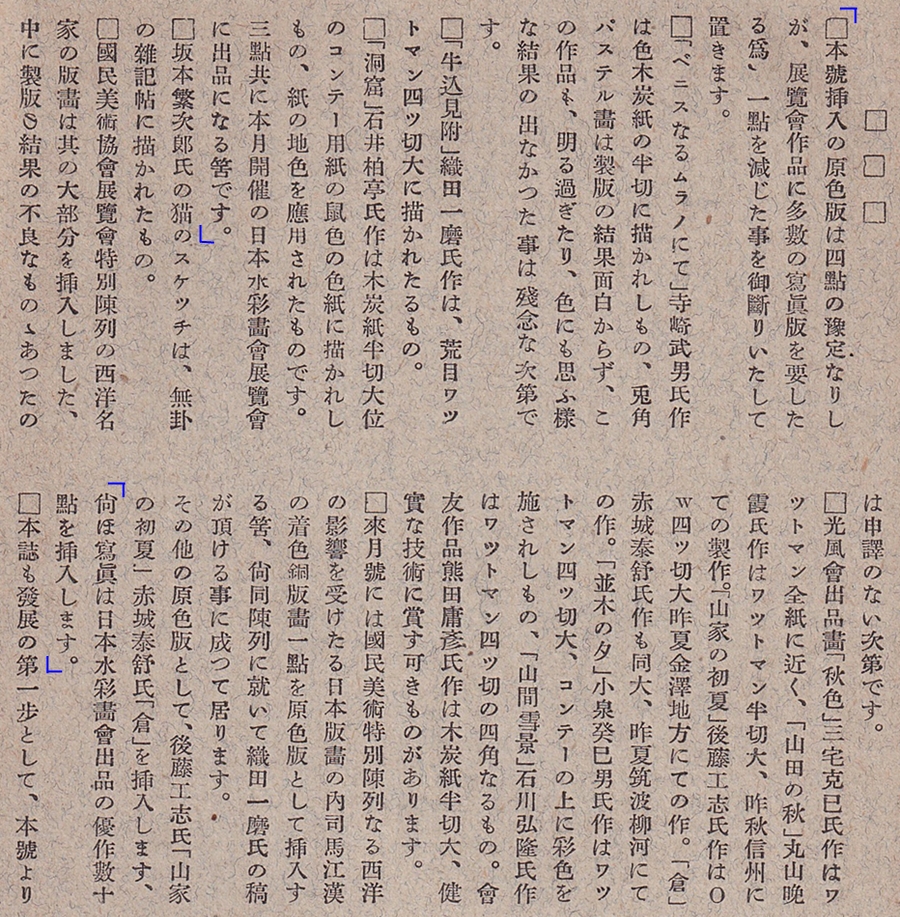 □□□
□本號挿入の原色版は四點の豫定なりし
が、展覽會作品に多數の寫眞版を要した
る爲、一點を減じた事を御斷りいたして
置きます。
□「ベニスなるムラノにて」寺崎武男氏作
は色木炭紙の半切に描かれしもの、兎角
パステル畫は製版の結果面白からず、こ
の作品も、明る過ぎたり、色にも思ふ樣
な結果の出なかつた事は殘念な次第で
す。
□「牛込見附」織田一磨氏作は、荒目ワツ
トマン四ツ切大に描かれたるもの。
□「洞窟」石井柏亭氏作は木炭紙半切大位
のコンテー用紙の鼠色の色紙に描かれし
もの、紙の地色を應用されたものです。
三點共に本月開催の日本水彩畫會展覽會
に出品になる筈です。
□坂本繁次郎氏の猫のスケツチは、無卦
の雜記帖に描かれたもの。
□國民美術協會展覽會特別陳列の西洋名
家の版畫は其の大部分を挿入しました、
中に製版の結果の不良なものゝあつたの
は申譯のない次第です。
□光風會出品畫「秋色」三宅克已氏作はワ
ツトマン全紙に近く、「山田の秋」丸山晩
霞氏作はワツトマン半切大、昨秋信州に
ての製作。「山家の初夏」後藤工志氏作はO
W四ツ切大昨夏金澤地方にての作。「倉」
赤城泰舒氏作も同大、昨夏筑波柳河にて
の作。「並木の夕」小泉癸巳男氏作はワツ
トマン四ツ切大、コンテーの上に彩色を
施されしもの、「山間雪景」石川弘隆氏作
はワツトマン四ツ切の四角なるもの。會
友作品熊田庸彥氏作は木炭紙半切大、健
實な技術に賞す可きものがあります。
□來月號には國民美術特別陳列なる西洋
の影響を受けたる日本版畫の內司馬江漢
の着色銅版畫一點を原色版として挿入す
る筈、尙同陳列に就いて織田一磨氏の稿
が頂ける事に成つて居ります。
その他の原色版として、後藤工志氏「山家
の初夏」赤城泰舒氏「倉」を挿入します、
尙ほ寫眞は日本水彩畫會出品の優作數十
點を挿入します。
□本誌も發展の第一步として、本號より